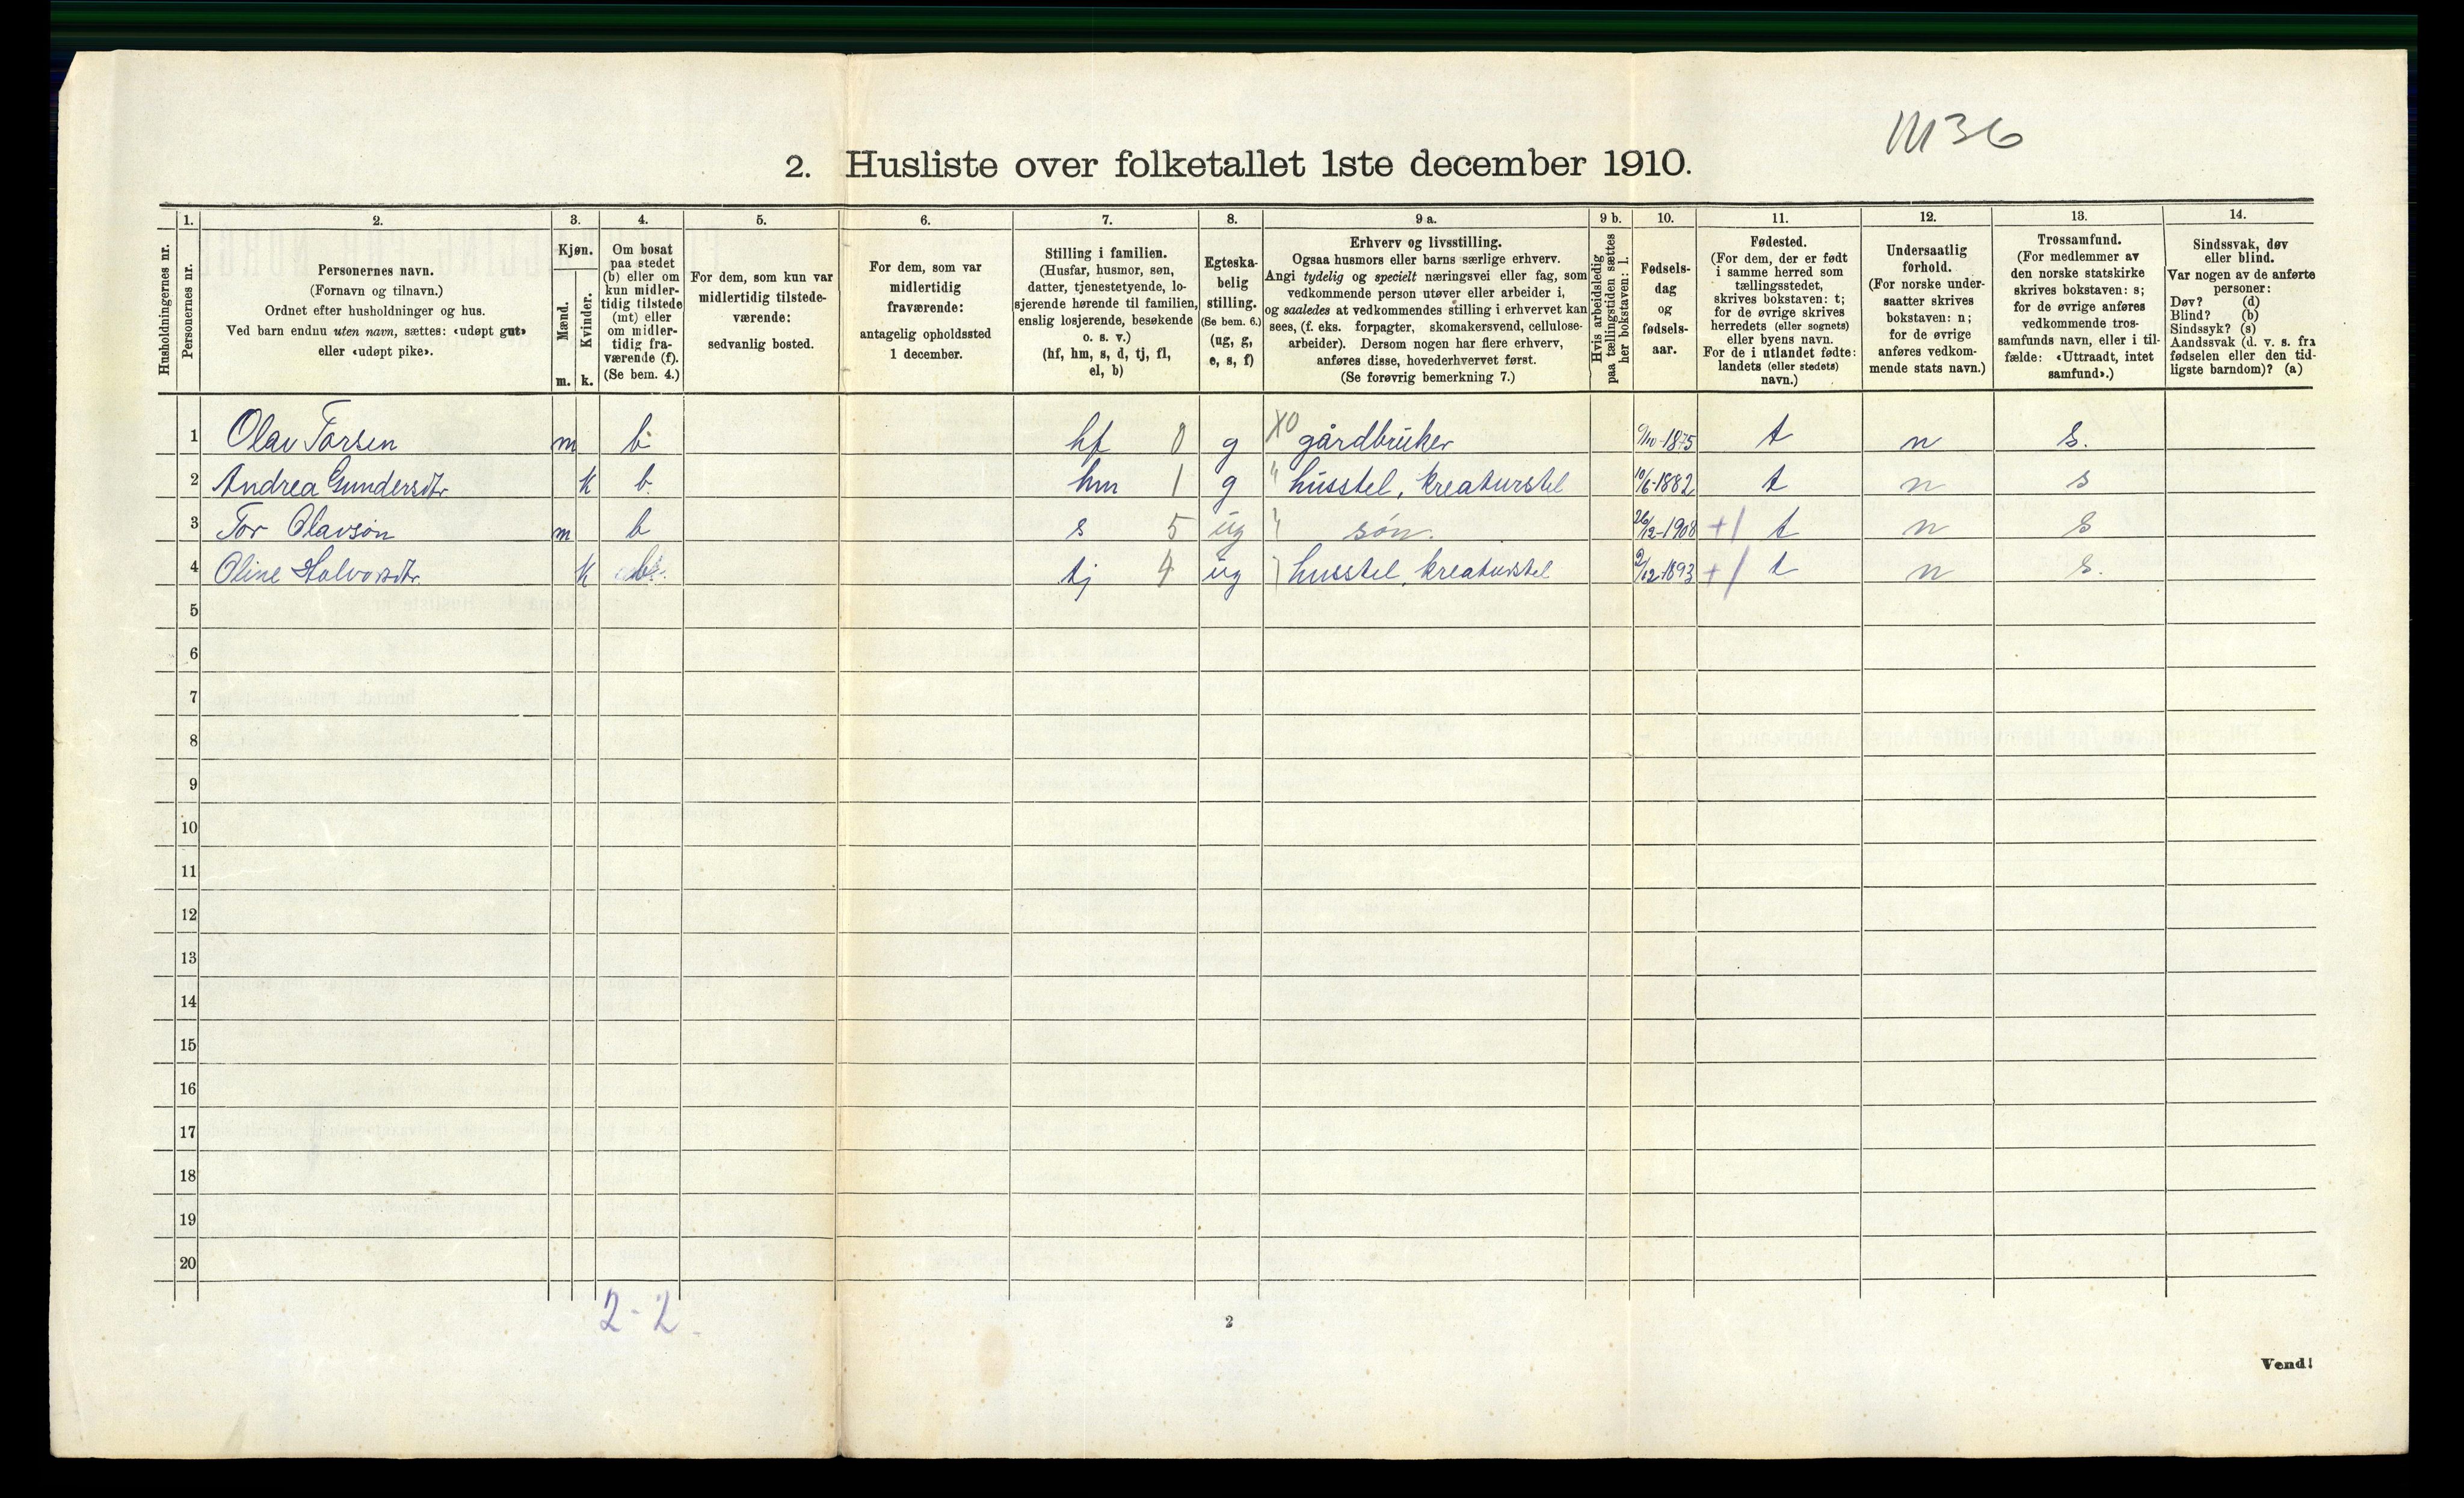 M36
2. Husliste over folketallet 1ste december 1910.
Husholdningernes nr.
1. Personernes nr.
2. Personernes navn.
(Fornavn og tilnavn.)
Ordnet efter husholdninger og hus.
Ved barn endnu uten navn, sættes: «udøpt gut»
eller «udøpt pike».
3. Kjøn.
Mænd. m.
Kvinder. k.
4. Om bosat
paa stedet
(b) eller om
kun midler-
tidig tilstede
(mt) eller
om midler-
tidig fra-
værende (f).
(Se bem. 4.)
5. For dem, som kun var
midlertidig tilstede-
værende:
sedvanlig bosted.
6. For dem, som var
midlertidig
fraværende:
antagelig opholdssted
1 december.
7. Stilling i familien.
(Husfar, husmor, søn,
datter, tjenestetyende, lo-
sjerende hørende til familien,
enslig losjerende, besøkende
o. s. v.)
(hf, hm, s, d, tj, fl,
el, b)
8. Egteska-
belig
stilling.
(Se bem. 6.)
(ug, g,
e, s, f)
9 a. Erhverv og livsstilling.
Ogsaa husmors eller barns særlige erhverv.
Angi tydelig og specielt næringsvei eller fag, som
vedkommende person utøver eller arbeider i,
og saaledes at vedkommendes stilling i erhvervet kan
sees, (f. eks. forpagter, skomakersvend, cellulose-
arbeider). Dersom nogen har flere erhverv,
anføres disse, hovederhvervet først.
(Se forøvrig bemerkning 7.)
9 b. Hvis arbeidsledig
paa tællingstiden sættes
her bokstaven: l.
10. Fødsels-
dag
og
fødsels-
aar.
11. Fødested.
(For dem, der er født
i samme herred som
tællingsstedet,
skrives bokstaven: t;
for de øvrige skrives
herredets (eller sognets)
eller byens navn.
For de i utlandet fødte:
landets (eller stedets)
navn.)
12. Undersaatlig
forhold.
(For norske under-
saatter skrives
bokstaven: n;
for de øvrige
anføres vedkom-
mende stats navn.)
13. Trossamfund.
(For medlemmer av
den norske statskirke
skrives bokstaven: s;
for de øvrige anføres
vedkommende tros-
samfunds navn, eller i til-
fælde: «Uttraadt, intet
samfund».)
14. Sindssvak, døv
eller blind.
Var nogen av de anførte
personer:
Døv? (d)
Blind? (b)
Sindssyk? (s)
Aandssvak (d. v. s. fra
fødselen eller den tid-
ligste barndom)? (a)
1 Olav Torsen m b hf 0 g X0 gårdbruker 1875 t n s.
2 Andrea Gundersdtr k b hm 1 g " husstel, kreaturstel 10/6-1882 t n s
3 Tor Olavson m b s 5 ug " søn. 26/12-1908 +/ t n s
4 Oline Halvorsdtr. k b tj 4 ug husstel, kreaturstel 2/12-1893 +/ t n s.
5
6
7
8
9
10
11
12
13
14
15
16
17
18
19
20
2-2.
2
Vend!